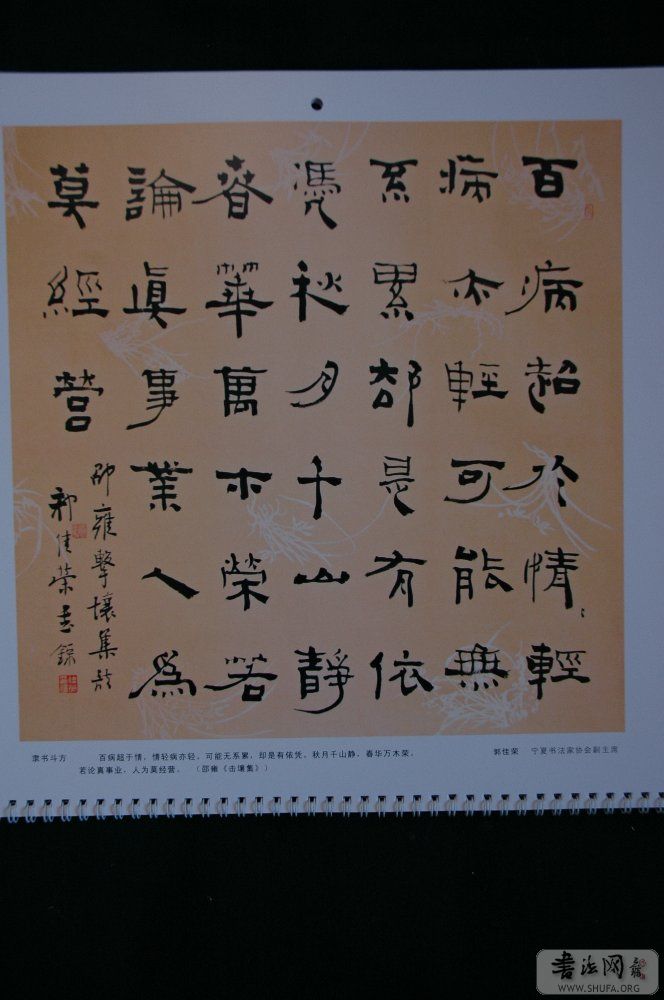 百病超於情〻輕
病亦輕可能無
系累卻是有依
憑秋月千山靜
春華萬木榮若
論眞事業人爲
莫經營
邵雍擊壤集
郭佳榮書錄
隶书斗方 百病超于情，情轻病亦轻。可能无系累，却是有依凭。秋月千山静，春华万木荣。
若论真事业，人为莫经营。（邵雍《击壤集》）
郭佳荣 宁夏书法家协会副主席
書法网
WWW.SHUFA.ORG